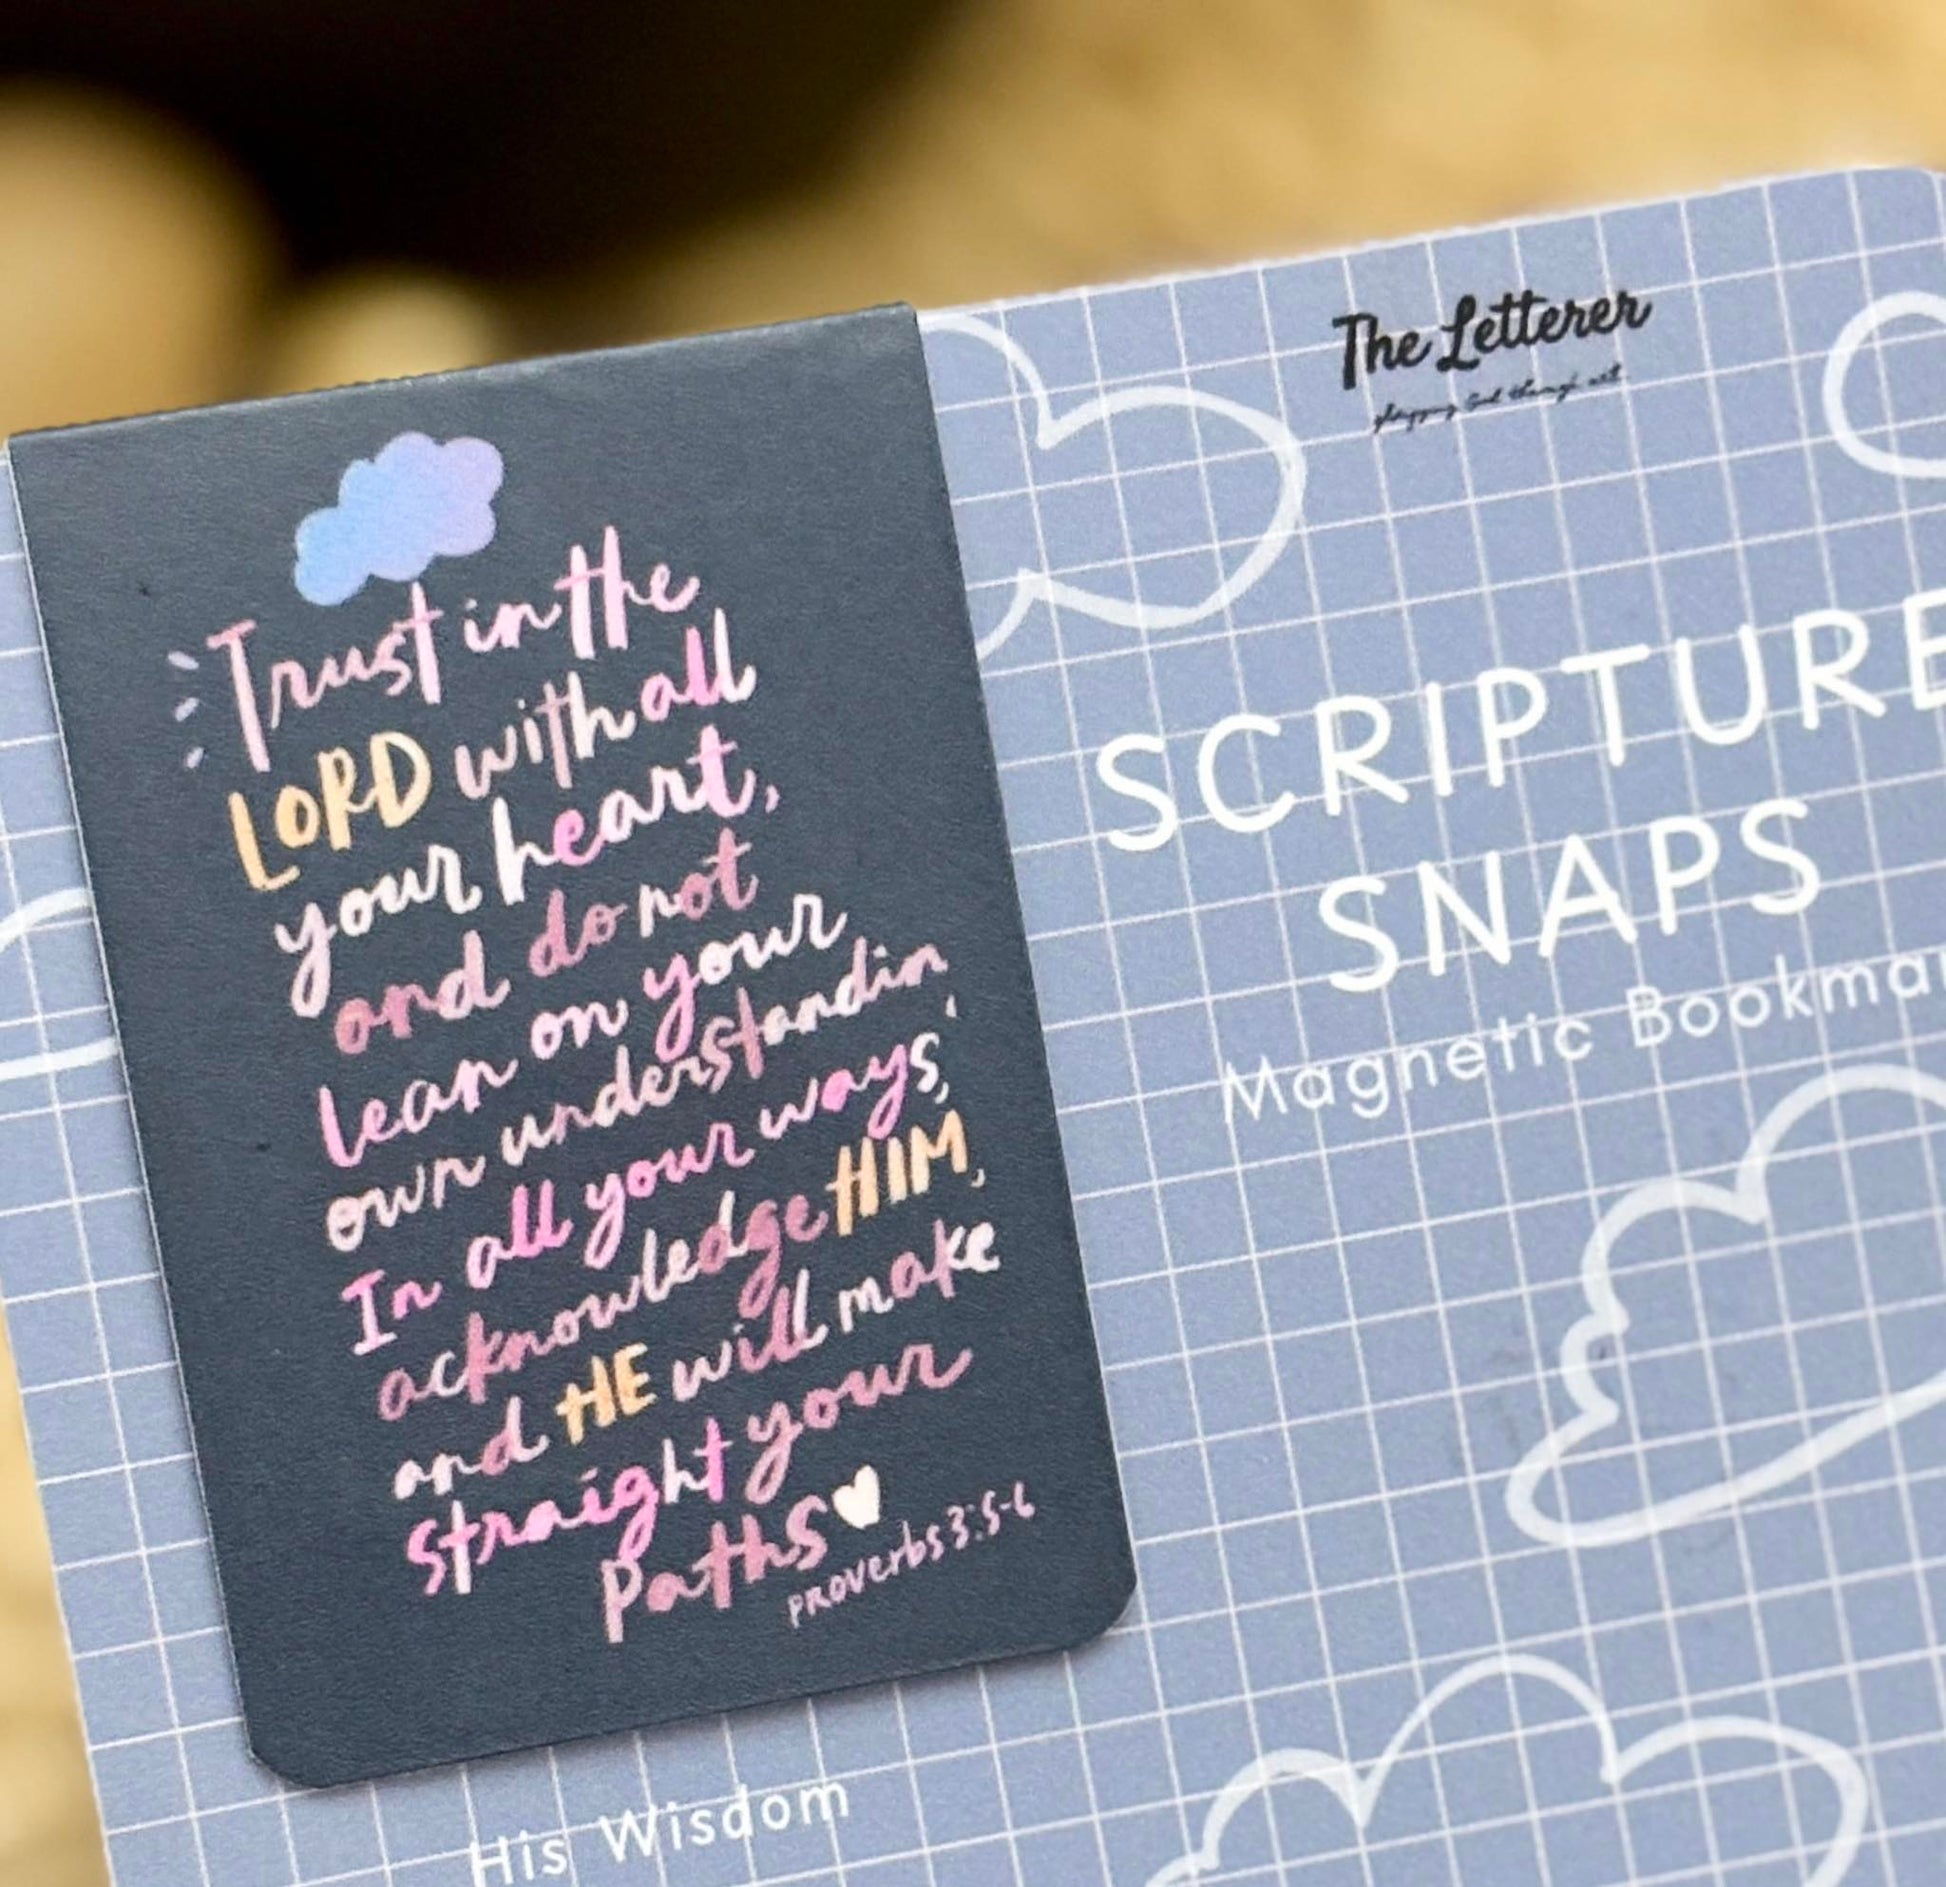 Trust in the
LORD with all
your heart,
and do not
lean on your
own understandin
In all your ways,
acknowledge HIM,
and HE will make
straight your
Paths
PROVERBS 3:5-6
The Letterer
SCRIPTURE
SNAPS
Magnetic Bookmar
His Wisdom